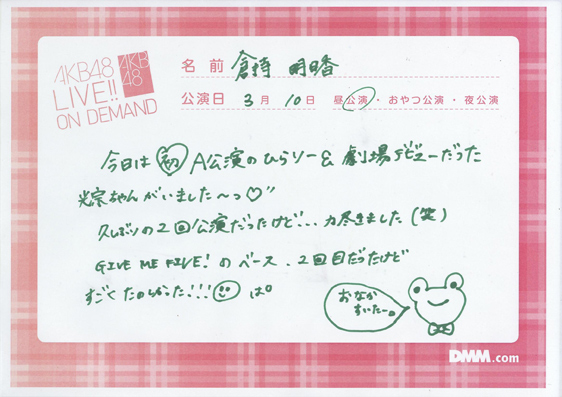 AKB48
LIVE!!
ON DEMAND
AKB
48
名前 倉持 明日香
公演日 3月 10日 昼公演・おやつ公演・夜公演
今日は 初 A公演のひらりー& 劇場デビューだった
光宗ちゃんがいました〜っ♡"
久しぶりの2回公演だったけど... 力尽きました(笑)
GIVE ME FIVE! のベース、2回目だったけど
すごくたのしかった!!!
おなか
すいたー。
DMM.com